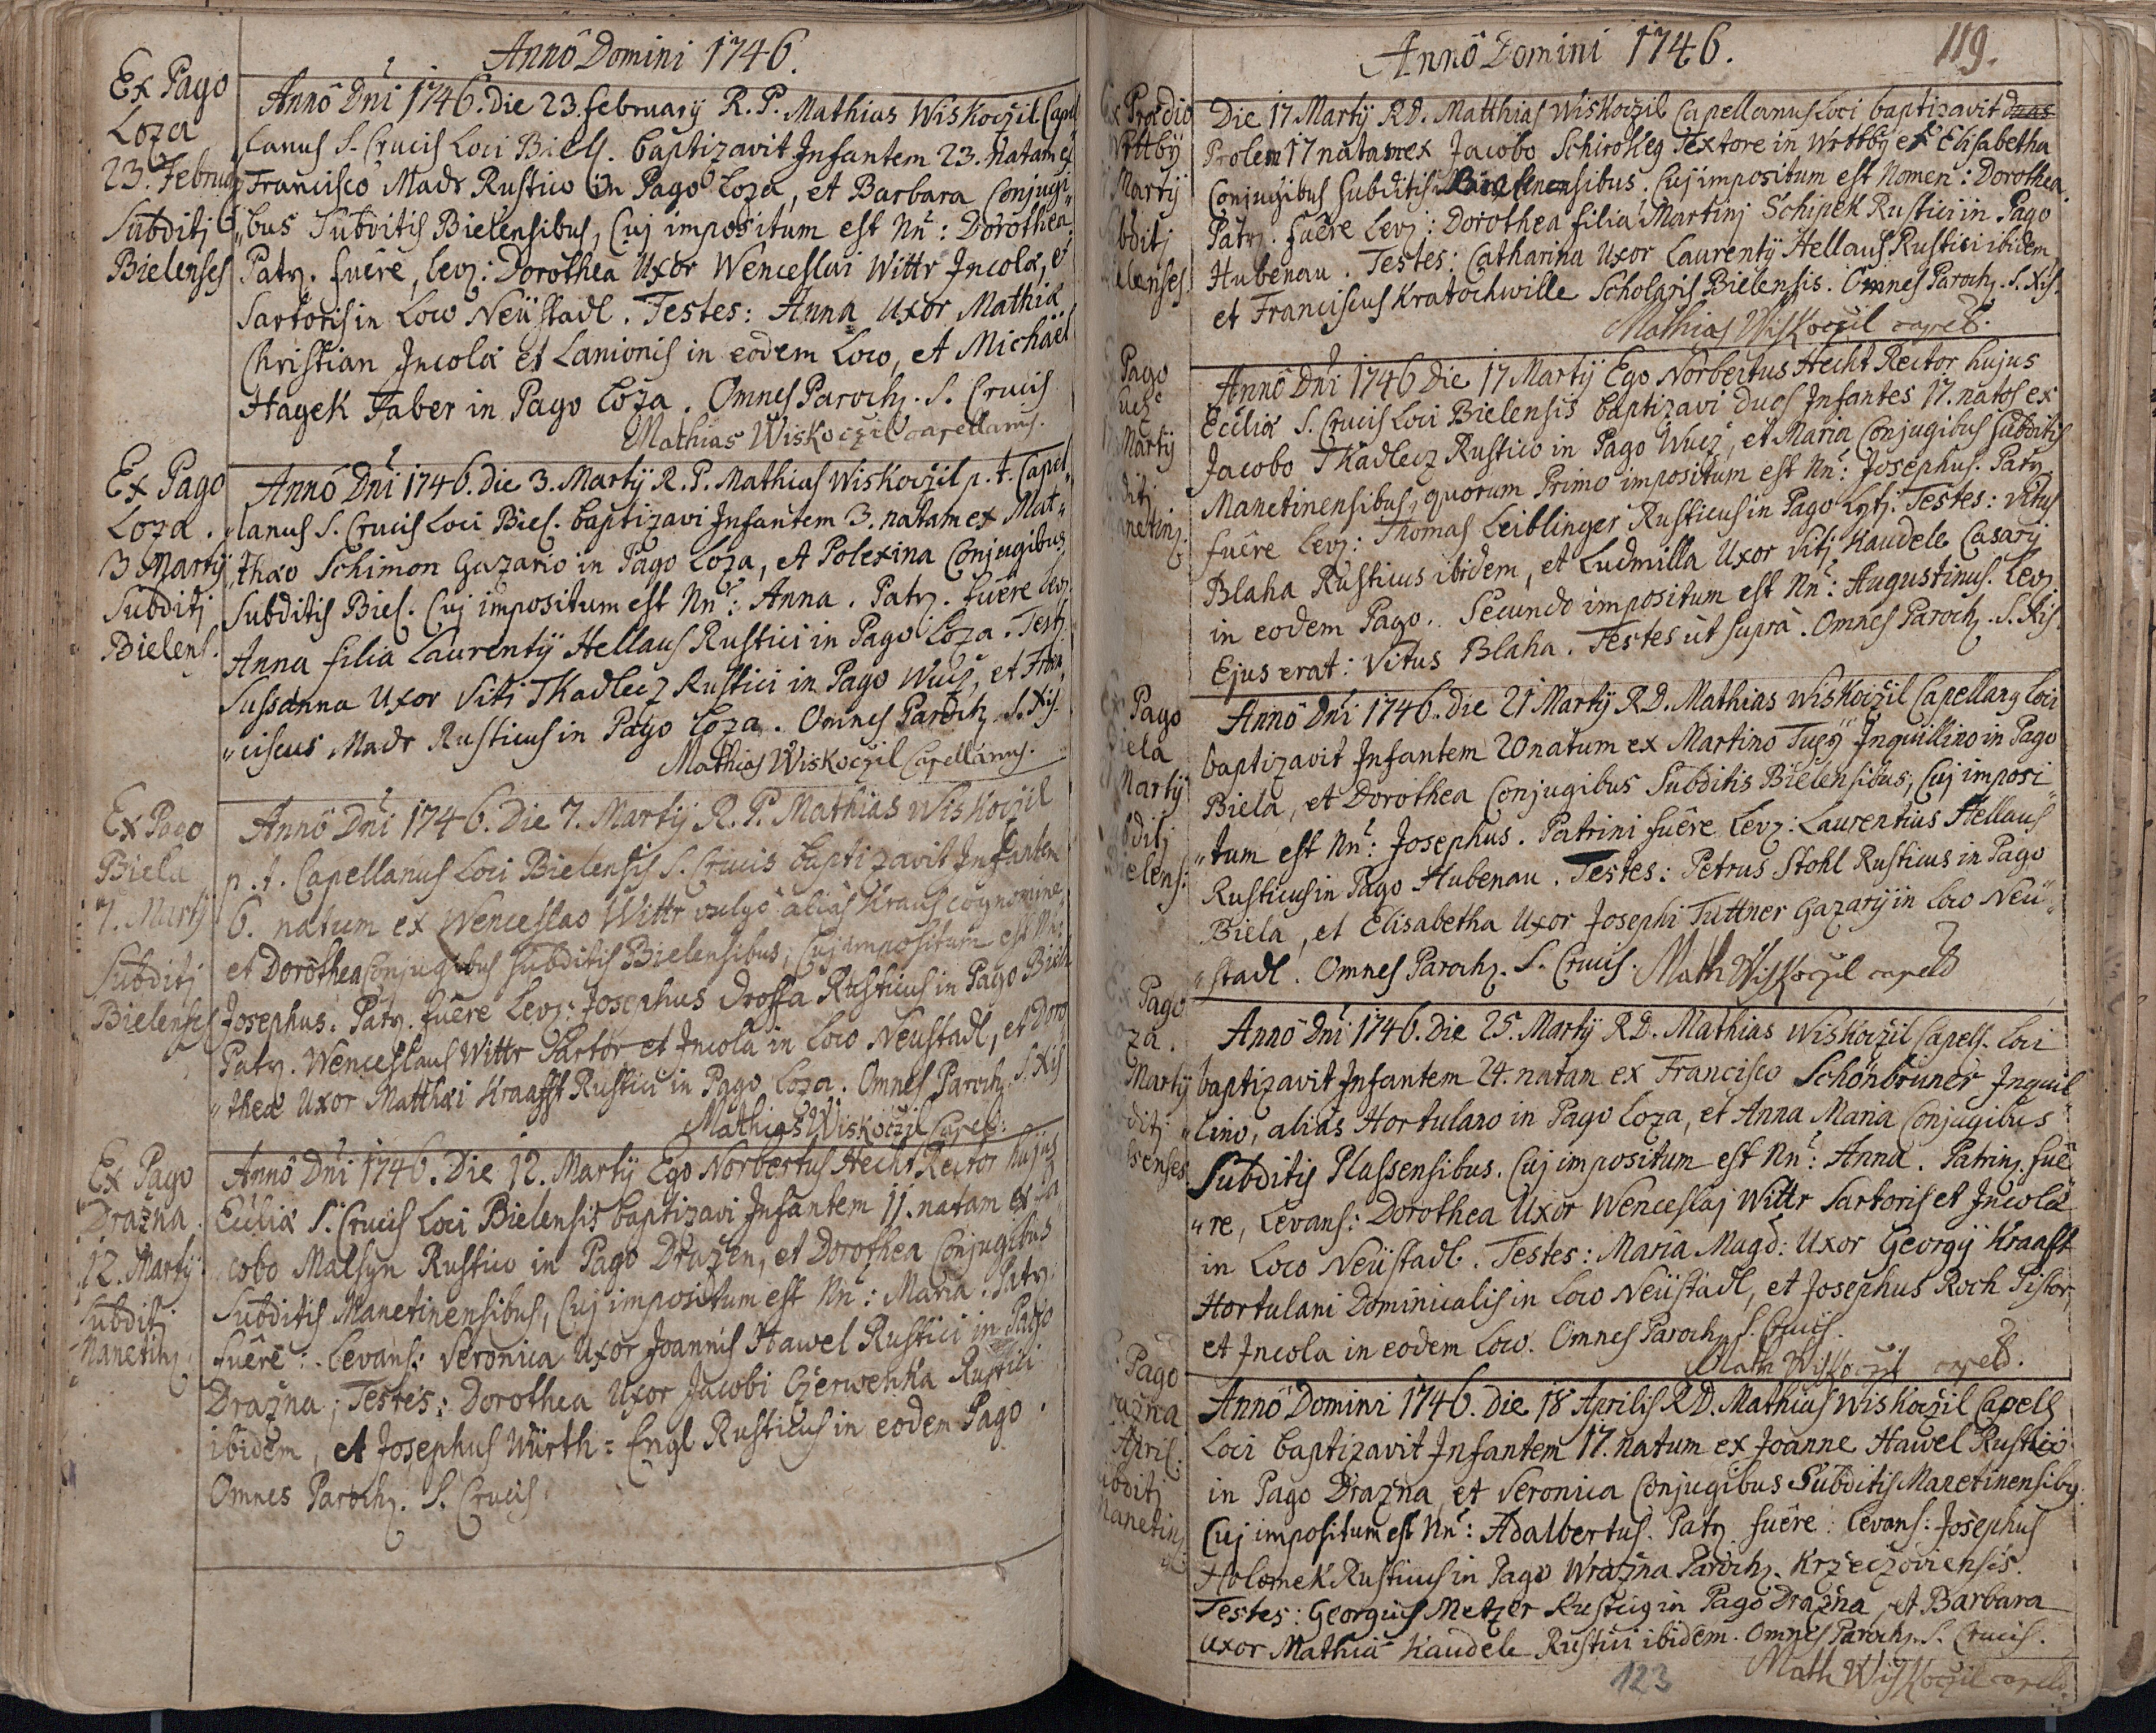 Annô Domini 1746.
Ex Pago
Loza
23. Februarÿ
Subditj
Bielenses
Annô Dnĩ 1746. Die 23. Februarÿ R. P. Mathias Wiskočzil Capel
lanus S. Crucis Loci Biel. baptizavit Infantem 23. natam ex
Francisco Madr Rustico in Pago Loza, et Barbara Conjugi„
„bus Subditis Bielensibus, Cuj impositum est Nñ: Dorothea.
Patr. fuêre, lev: Dorothea Uxor Wenceslai Wittr Incolæ, et
Sartoris in Loco Neüstadl. Testes: Anna Uxor Mathiæ
Christian Incolæ et Lanionis in eodem Loco, et Michaël
Hagek Faber in Pago Loza. Omnes Paroch. S. Crucis
Mathias Wiskoczil capellanus.
Ex Pago
Loza.
3 Martÿ
Subditj
Bielens.
Annô Dnĩ 1746. Die 3. Martÿ R. P. Mathias Wiskočzil p. t. Capel„
„lanus S. Crucis Loci Biel. baptizavi Infantem 3. natam ex Mat„
„thæo Schimon Gazario in Pago Loza, et Polexina Conjugibus
Subditis Biel. Cuj impositum est Nñ: Anna. Patr. fuêre lev:
Anna filia Laurentÿ Hellaus Rustici in Pago Loza. Test:
Sussanna Uxor Viti Tkadlecz Rustici in Pago Wucz, et Fran„
„ciscus Madr Rusticus in Pago Loza. Omnes Paroch. S. Xis.
Mathias Wiskoczil Capellanus.
Ex Pago
Biela
7. Martÿ
Subditj
Bielenses
Annô Dnĩ 1746. Die 7. Martÿ R. P. Mathias Wiskoczil
p. t. Capellanus Loci Bielensis S. Crucis baptizavit Infantem
6. natum ex Wenceslao Wittr vulgô aliàs Kraus cognomine
et Dorothea Conjugibus Subditis Bielensibus, Cuj impositum est Nñ:
Josephus. Patr. fuêre Lev: Josephus Drossa Rusticus in Pago Biela
Patr. Wenceslaus Wittr Sartor et Incola in Loco Neustadl, et Doro
„thea Uxor Matthæi Kraafft Rustici in Pago Loza. Omnes Paroch. S. Xis
Mathias Wiskoczil Capell:
Ex Pago
Drazna.
12. Martÿ
Subditj
Manetin.
Annô Dnĩ 1746. Die 12. Martÿ Ego Norbertus Hecht Rector hujus
Ecĉliæ S. Crucis Loci Bielensis baptizavi Infantem 11. natam ex Ja
cobo Malsyn Rustico in Pago Dražen, et Dorothea Conjugibus
Subditis Manetinensibus, Cuj impositum est Nñ: Maria. Patr:
fuêre: Levans: Veronica Uxor Joannis Hawel Rustici in Pago
Drazna; Testes: Dorothea Uxor Jacobi Czerwenka Rustici
ibidem, et Josephus Würth=Engl Rusticus in eodem Pago.
Omnes Paroch. S. Crucis
119.
Annô Domini 1746.
Ex Prædio
Wrttby
Martÿ
bditj
elenses
Die 17 Martÿ RD. Matthias Wiskoczil Capellanus Loci baptizavit duas
Prolem 17 natam ex Jacobo Schirokeg Textore in Wrttby et Elisabetha
Conjugibus Subditis Bielensibus. Cuj impositum est Nomen: Dorothea.
Patr. fuêre Lev: Dorothea filia Martinj Schipek Rustici in Pago
Hubenau. Testes: Catharina Uxor Laurentÿ Hellaus Rustici ibidem,
et Franciscus Kratochwille Scholaris Bielensis. Omnes Paroch. S. Xis.
Mathias Wiskoczil capell.
Pago
Martÿ
ditj
netinj.
Annô Dnĩ 1746 Die 17 Martÿ Ego Norbertus Hecht Rector hujus
Ecĉliæ S. Crucis Loci Bielensis baptizavi duos Infantes 17. natos ex
Jacobo Tkadlecz Rustico in Pago Wucz, et Maria Conjugibus Subditis
Manetinensibus, quorum Primo impositum est Nñ: Josephus. Patr.
fuêre Lev: Thomas Leiblinger Rusticus in Pago Lytj. Testes: Vitus
Blaha Rusticus ibidem, et Ludmilla Uxor Vitj Kaudele Casarÿ
in eodem Pago. Secundo impositum est Nñ: Augustinus. Lev:
Ejus erat: Vitus Blaha. Testes ut suprà. Omnes Paroch. S. Xis.
Pago
iela
Martÿ
ditj
ielens:
Annô Dnĩ 1746. Die 21 Martÿ RD. Mathias Wiskoczil Capellanq Loci
baptizavit Infantem 20 natum ex Martino Inquillino in Pago
Biela, et Dorothea Conjugibus Subditis Bielensibus, Cuj imposi„
„tum est Nñ: Josephus. Patrini fuêre Lev: Laurentius Hellaus
Rusticus in Pago Hubenau. Testes: Petrus Stohl Rusticus in Pago
Biela, et Elisabetha Uxor Josephi Tuttner Gazarÿ in Loco Neu„
„stadl. Omnes Paroch. S. Crucis. Math Wiskoczil capell
Pago
za.
Martÿ
ditj
senses
Annô Dnĩ 1746. Die 25. Martÿ RD. Mathias Wiskoczil Capell. Loci
baptizavit Infantem 24. natam ex Francisco Schönbruner Inquil„
„lino, aliàs Hortulano in Pago Loza, et Anna Maria Conjugibus
Subditis Plassensibus. Cuj impositum est Nñ: Anna. Patrinj. fuê„
„re, Levans: Dorothea Uxor Wenceslaj Wittr Sartoris et Incolæ
in Loco Neüstadl. Testes: Maria Magd: Uxor Georgÿ Kraafft
Hortulani Dominicalis in Loco Neüstadl, et Josephus Roch Pistor,
et Incola in eodem Loco. Omnes Paroch. S. Crucis.
Math Wiskoczil capell.
Pago
razna
April:
bditj
Manetin
Annô Domini 1746. Die 18 Aprilis RD. Mathias Wiskoczil Capell
Loci baptizavit Infantem 17. natum ex Joanne Hawel Rustico
in Pago Drazna, et Veronica Conjugibus Subditis Manetinensibq.
Cuj impositum est Nñ: Adalbertus. Patr fuêre: Levans: Josephus
Holomek Rusticus in Pago Wrazna Paroch. Krzeczoviensis.
Testes: Georgius Metzer Rusticq in Pago Drazna, et Barbara
Uxor Mathiæ Kaudele Rustici ibidem. Omnes Paroch. S. Crucis.
Math Wiskoczil capell.
123